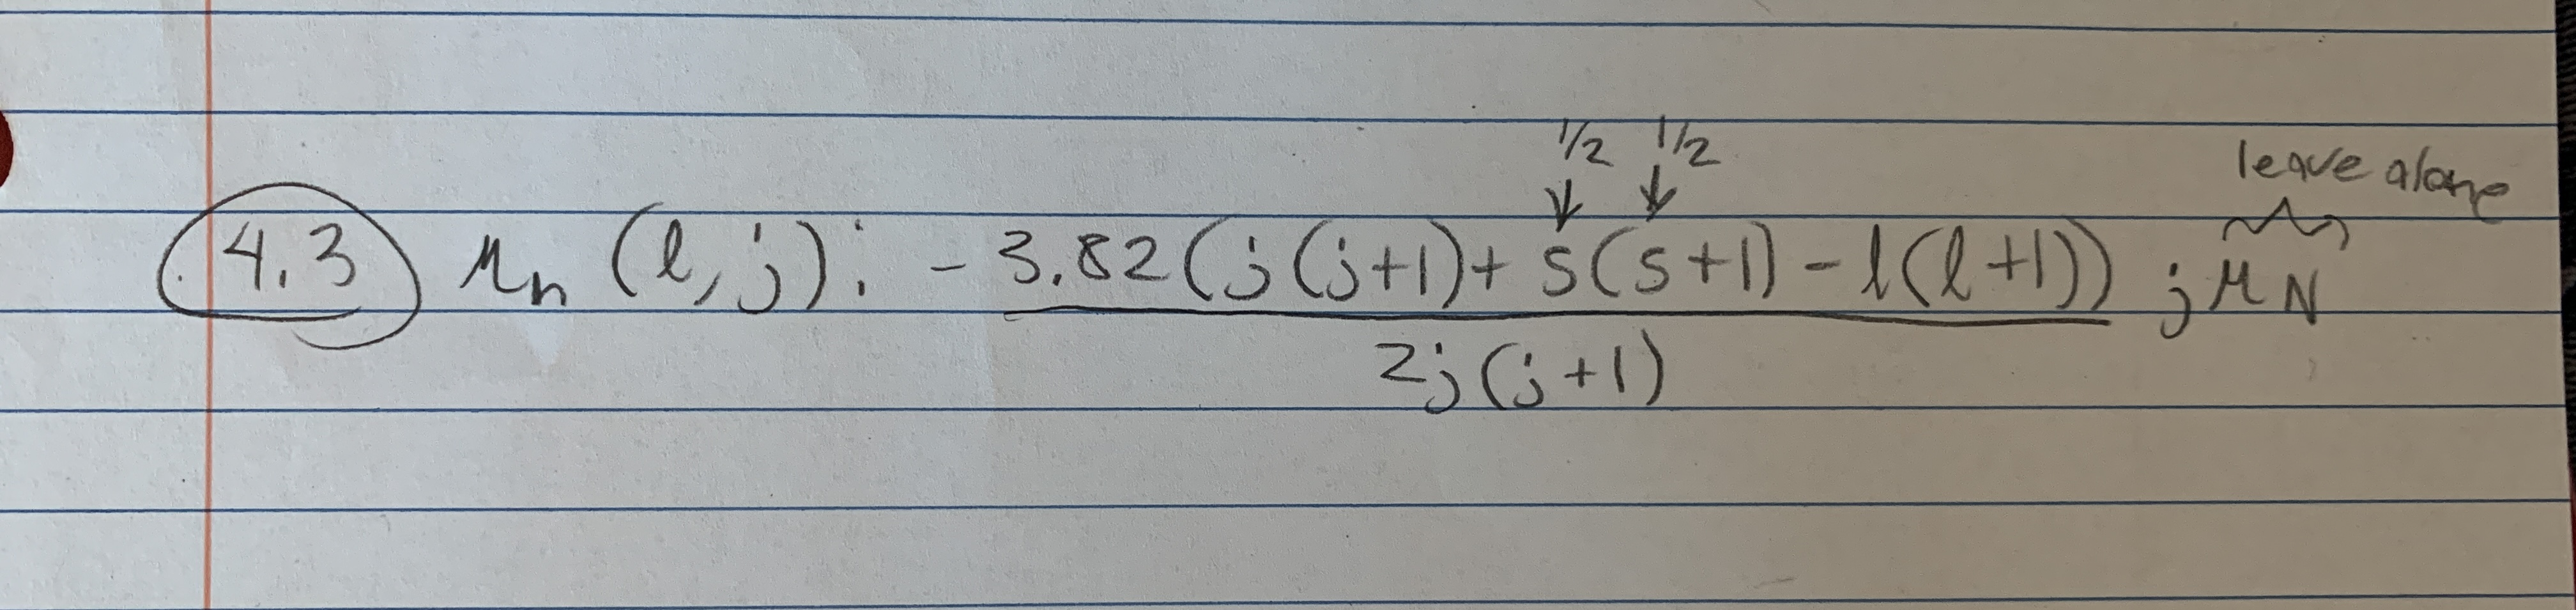 1/2 1/2
leave alone
4.3 μn (l, j): - 3.82(j(j+1)+ s(s+1) - l(l+1)) jμN
2j(j+1)